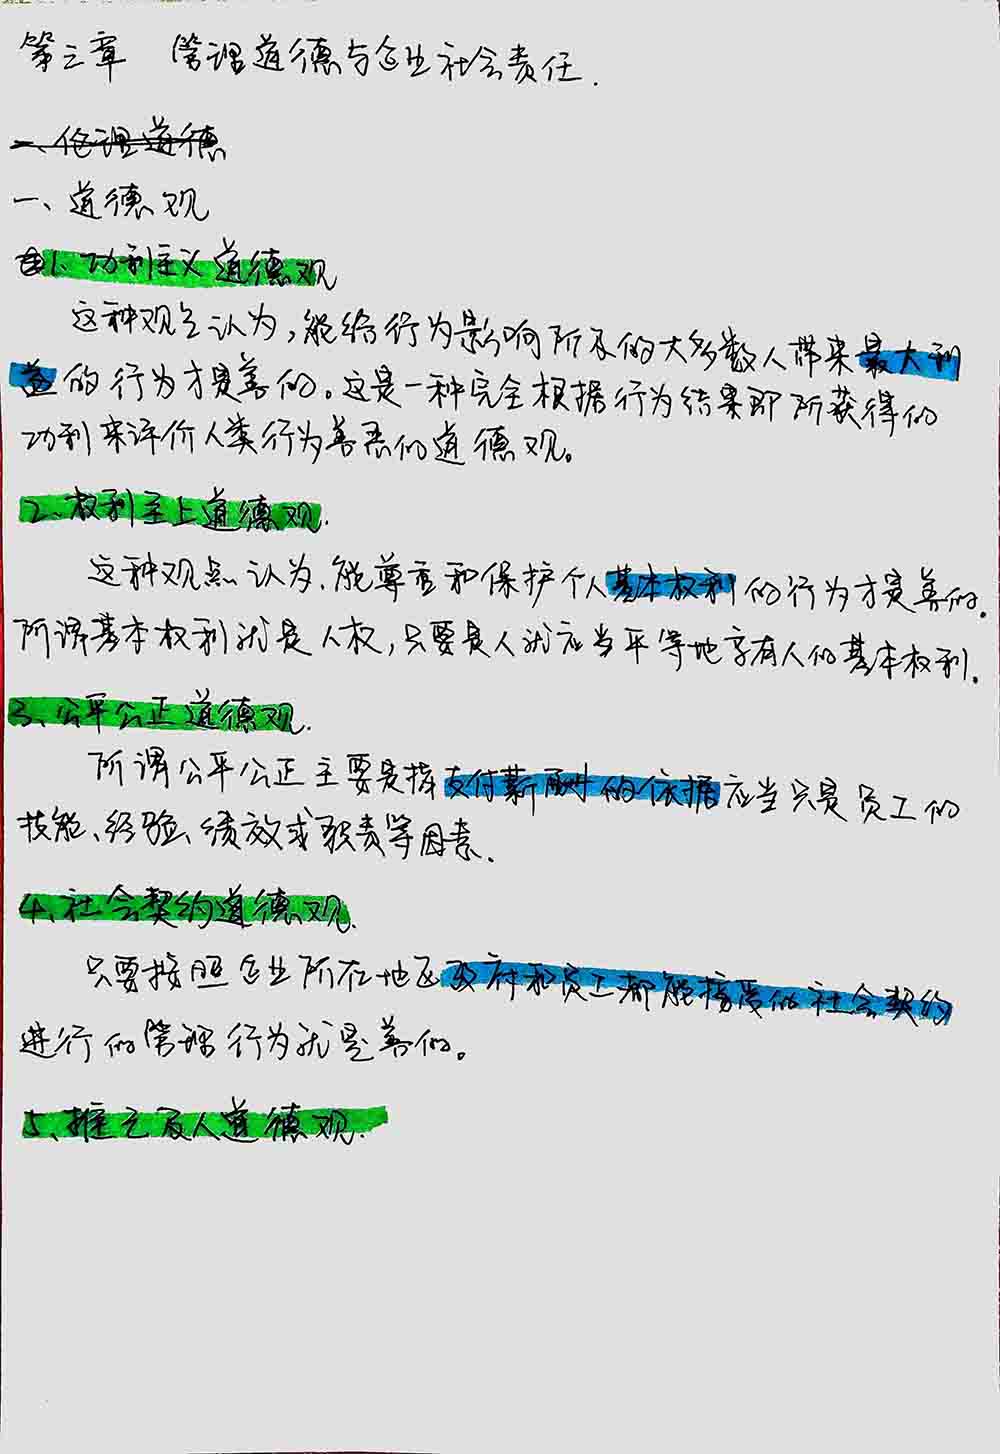 第三章 管理道德与企业社会责任.
一、伦理道德
一、道德观
1、功利主义道德观
这种观点认为,能给行为影响所及的大多数人带来最大利
益的行为才是善的。这是一种完全根据行为结果即所获得的
功利来评价人类行为善恶的道德观。
2、权利至上道德观.
这种观点认为,能尊重和保护个人基本权利的行为才是善的.
所谓基本权利就是人权,只要是人就应当平等地享有人的基本权利.
3、公平公正道德观.
所谓公平公正主要是指支付薪酬的依据应当只是员工的
技能、经验、绩效或职责等因素.
4、社会契约道德观.
只要按照企业所在地区政府和员工都能接受的社会契约
进行的管理行为就是善的。
5、推己及人道德观.